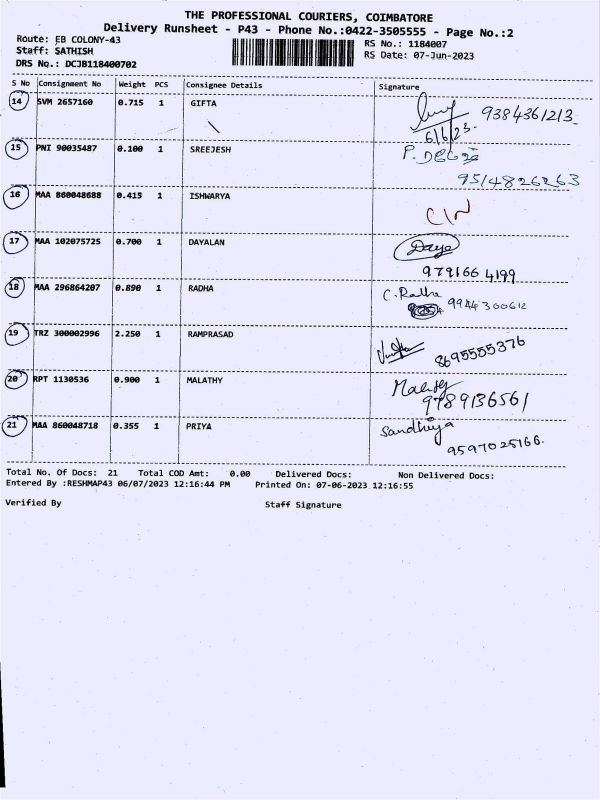 THE PROFESSIONAL COURIERS, COIMBATORE
Delivery Runsheet - P43 - Phone No.:0422-3505555 - Page No.:2
Route: EB COLONY-43
RS No.: 1184007
Staff: SATHISH
RS Date: 07-Jun-2023
DRS No.: DCJB118400702
S No Consignment No Weight PCS Consignee Details Signature
14 SVM 2657160 0.715 1 GIFTA 9384361213
6/6/23.
15 PNI 90035487 0.100 1 SREEJESH P.
9514826263
16 MAA 860048688 0.415 1 ISHWARYA
C/N
17 MAA 102075725 0.700 1 DAYALAN Daya
979166 4199
18 MAA 296864207 0.890 1 RADHA C. Radha
9944300612
19 TRZ 300002996 2.250 1 RAMPRASAD
8695555376
20 RPT 1130536 0.900 1 MALATHY
9789136561
21 MAA 860048718 0.355 1 PRIYA Sandhiya
9597025166.
Total No. Of Docs: 21 Total COD Amt: 0.00 Delivered Docs: Non Delivered Docs:
Entered By :RESHMAP43 06/07/2023 12:16:44 PM Printed On: 07-06-2023 12:16:55
Verified By Staff Signature